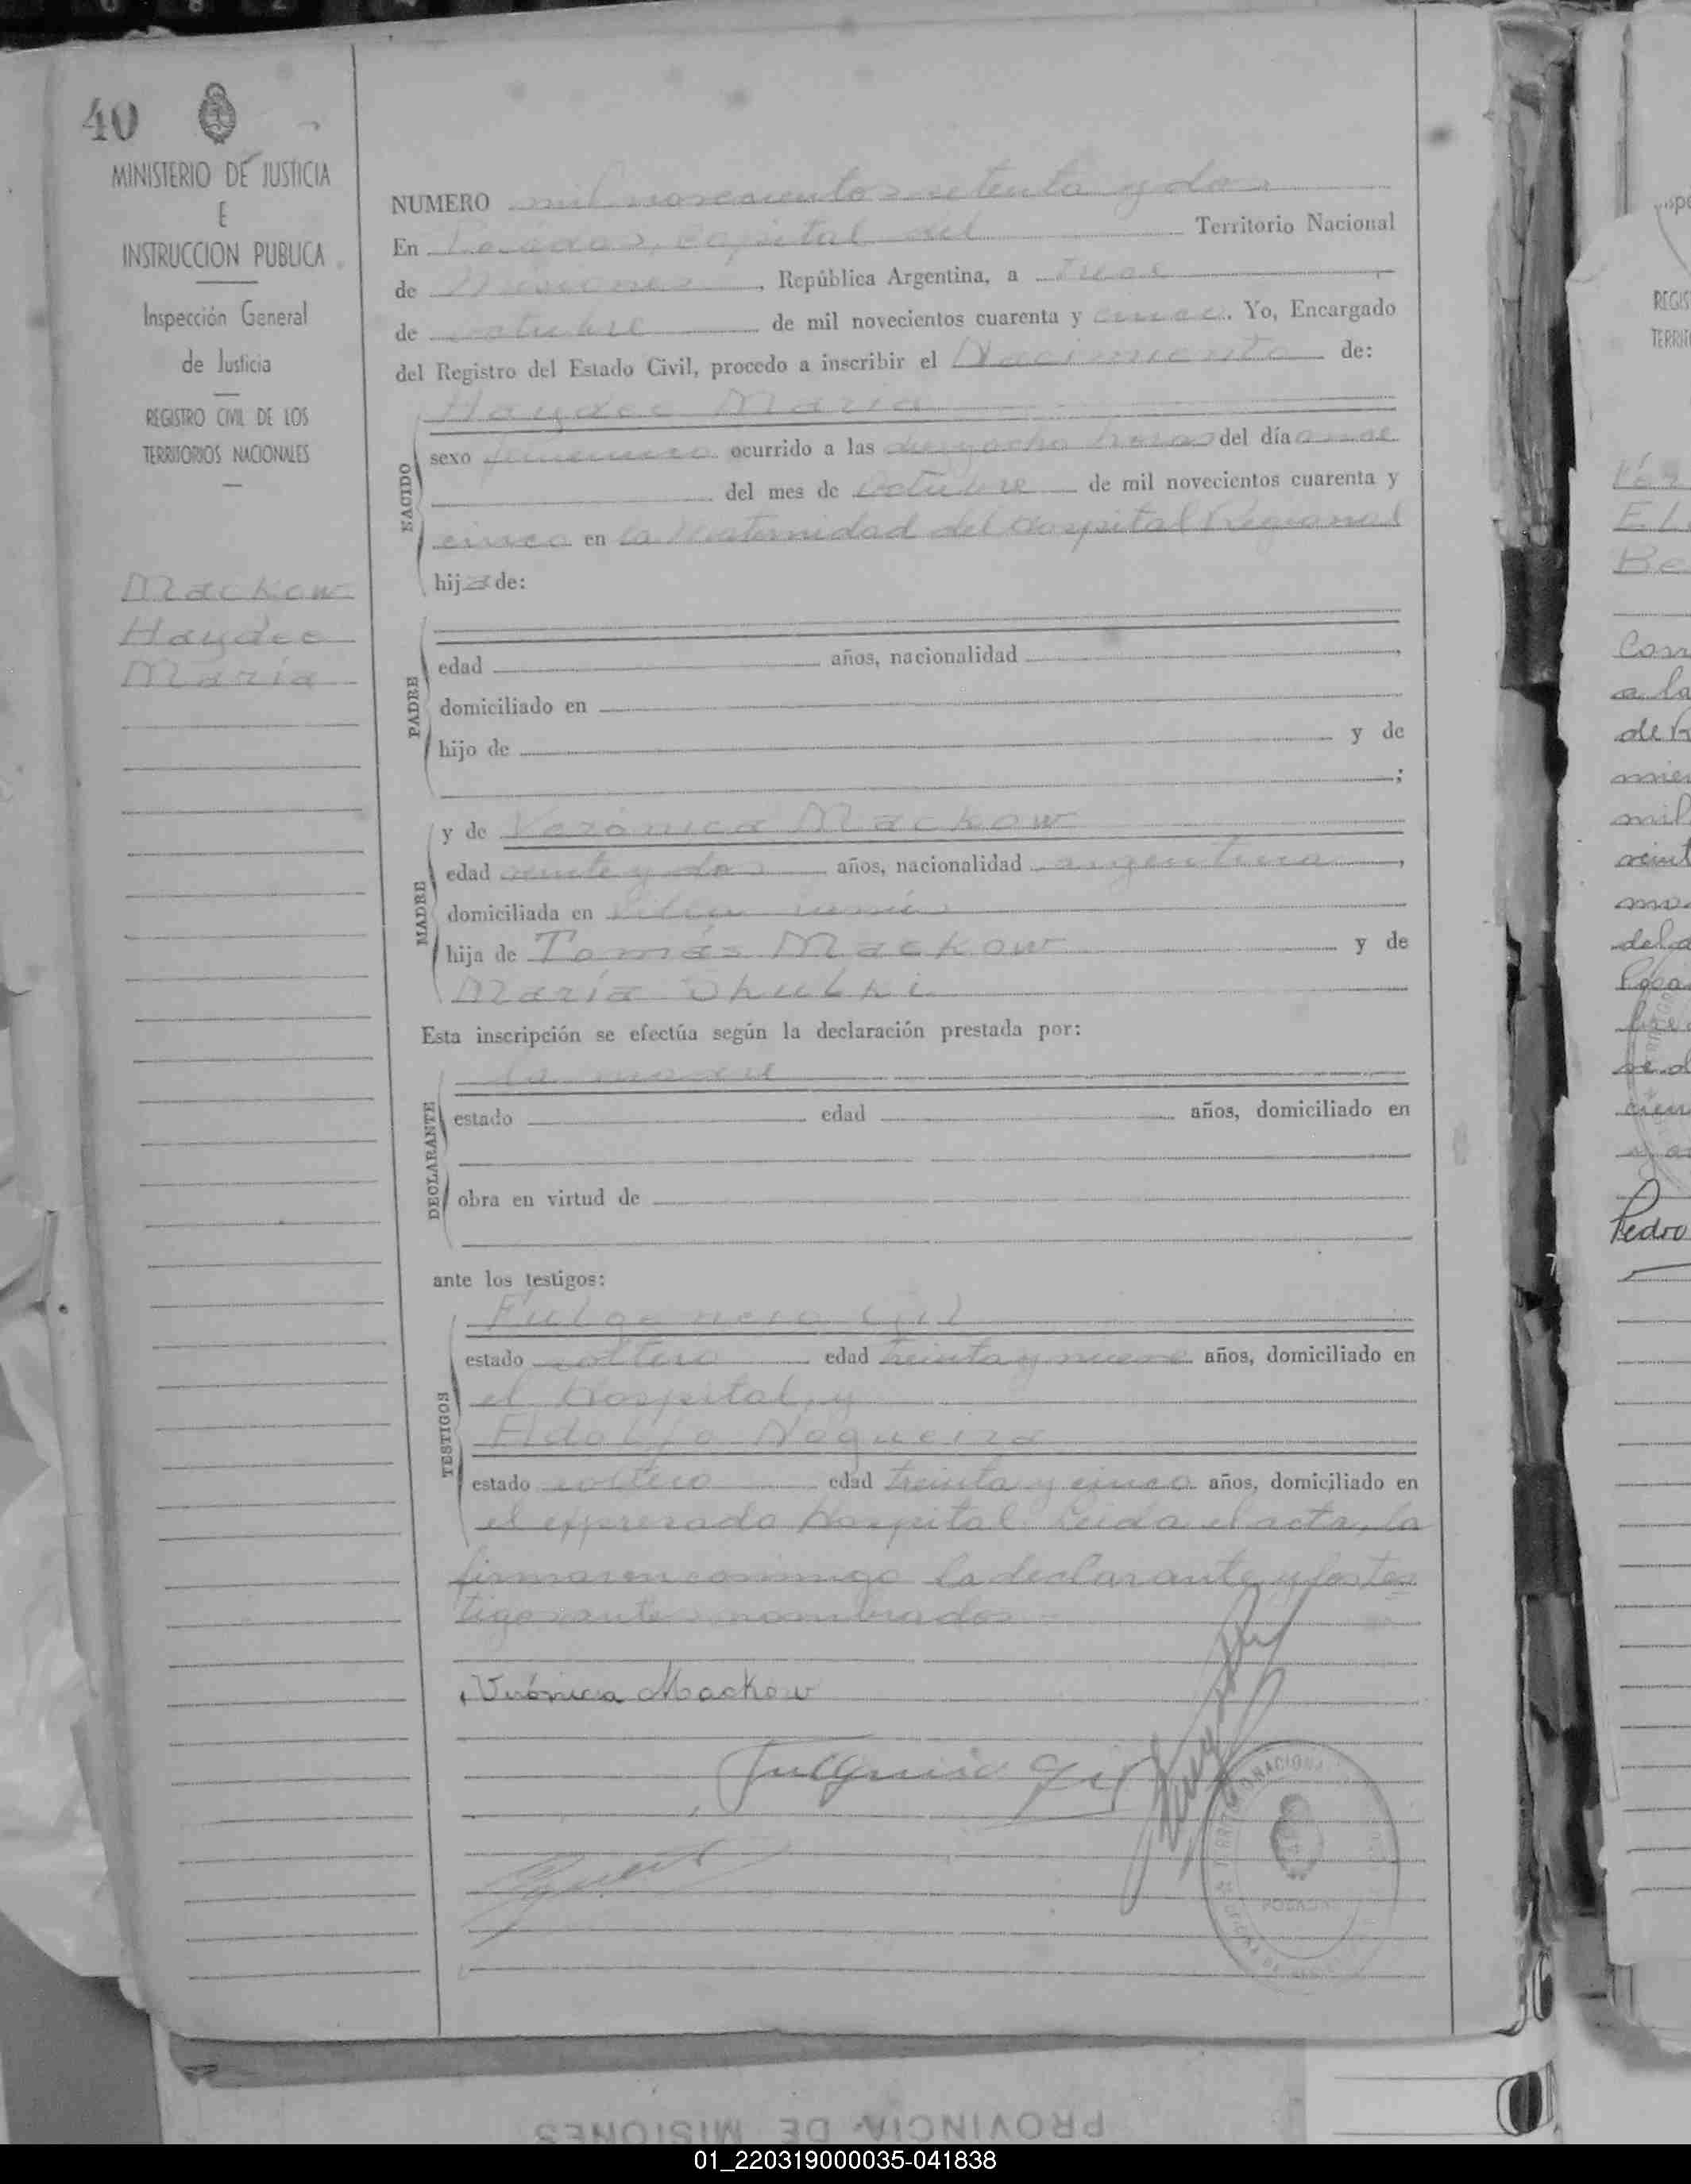 40
MINISTERIO DE JUSTICIA
E
INSTRUCCION PUBLICA
Inspección General
de Justicia
REGISTRO CIVIL DE LOS
TERRITORIOS NACIONALES
Mackow
Haydee
María
NUMERO mil novecientos setenta y dos
En Posadas, capital del Territorio Nacional
de Misiones, República Argentina, a
de octubre de mil novecientos cuarenta y cinco. Yo, Encargado
del Registro del Estado Civil, procedo a inscribir el Nacimiento de:
NACIDO
Haydee María
sexo femenino ocurrido a las dieciocho horas del día once
del mes de octubre de mil novecientos cuarenta y
cinco en la Maternidad del Hospital Regional
hija de:
PADRE
edad años, nacionalidad
domiciliado en
hijo de y de
;
MADRE
y de Verónica Mackow
edad veinte y dos años, nacionalidad argentina,
domiciliada en
hija de Tomás Mackow y de
María Skulski
Esta inscripción se efectúa según la declaración prestada por:
DECLARANTE
la madre
estado edad años, domiciliado en
obra en virtud de
ante los testigos:
TESTIGOS
Fulgencio Gil
estado soltero edad treinta y nueve años, domiciliado en
el Hospital, y
Eldolfo Nogueira
estado soltero edad treinta y cinco años, domiciliado en
el expresado Hospital. Leida el acta, la
firmaron conmigo la declarante y los tes
tigos antes nombrados.-
Verónica Mackow
Fulgencio Gil
POSADAS
Pedro
PROVINCIA DE MISIONES
01_220319000035-041838